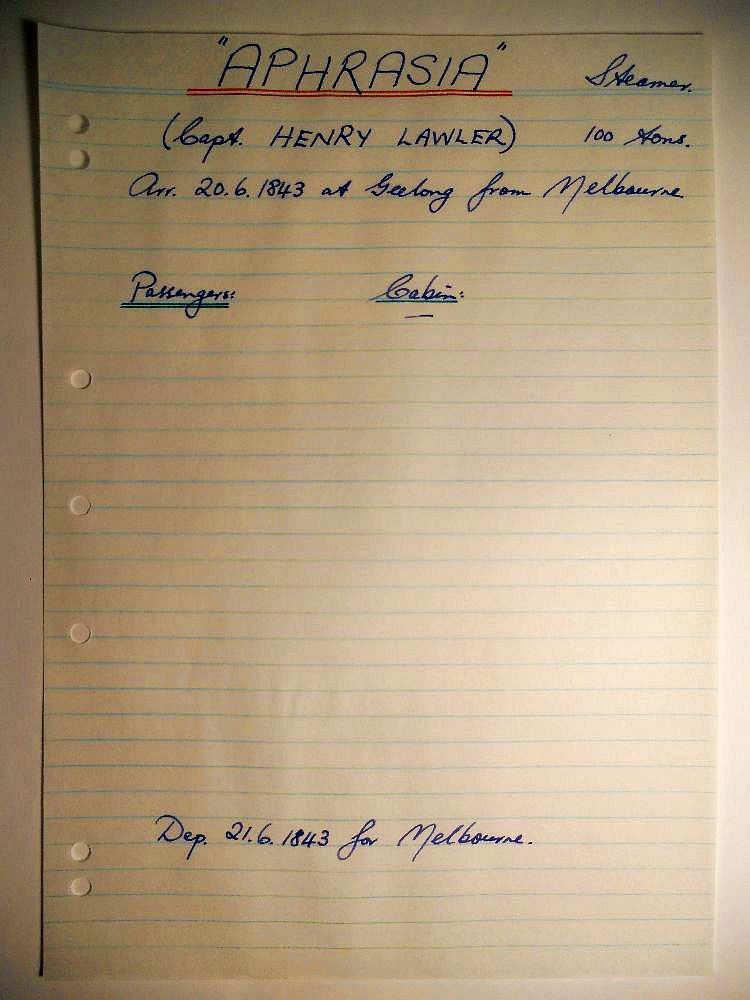 "APHRASIA" Steamer.
(Capt. HENRY LAWLER) 100 tons.
Arr. 20.6.1843 at Geelong from Melbourne
Passengers: Cabin:
—
Dep. 21.6.1843 for Melbourne.